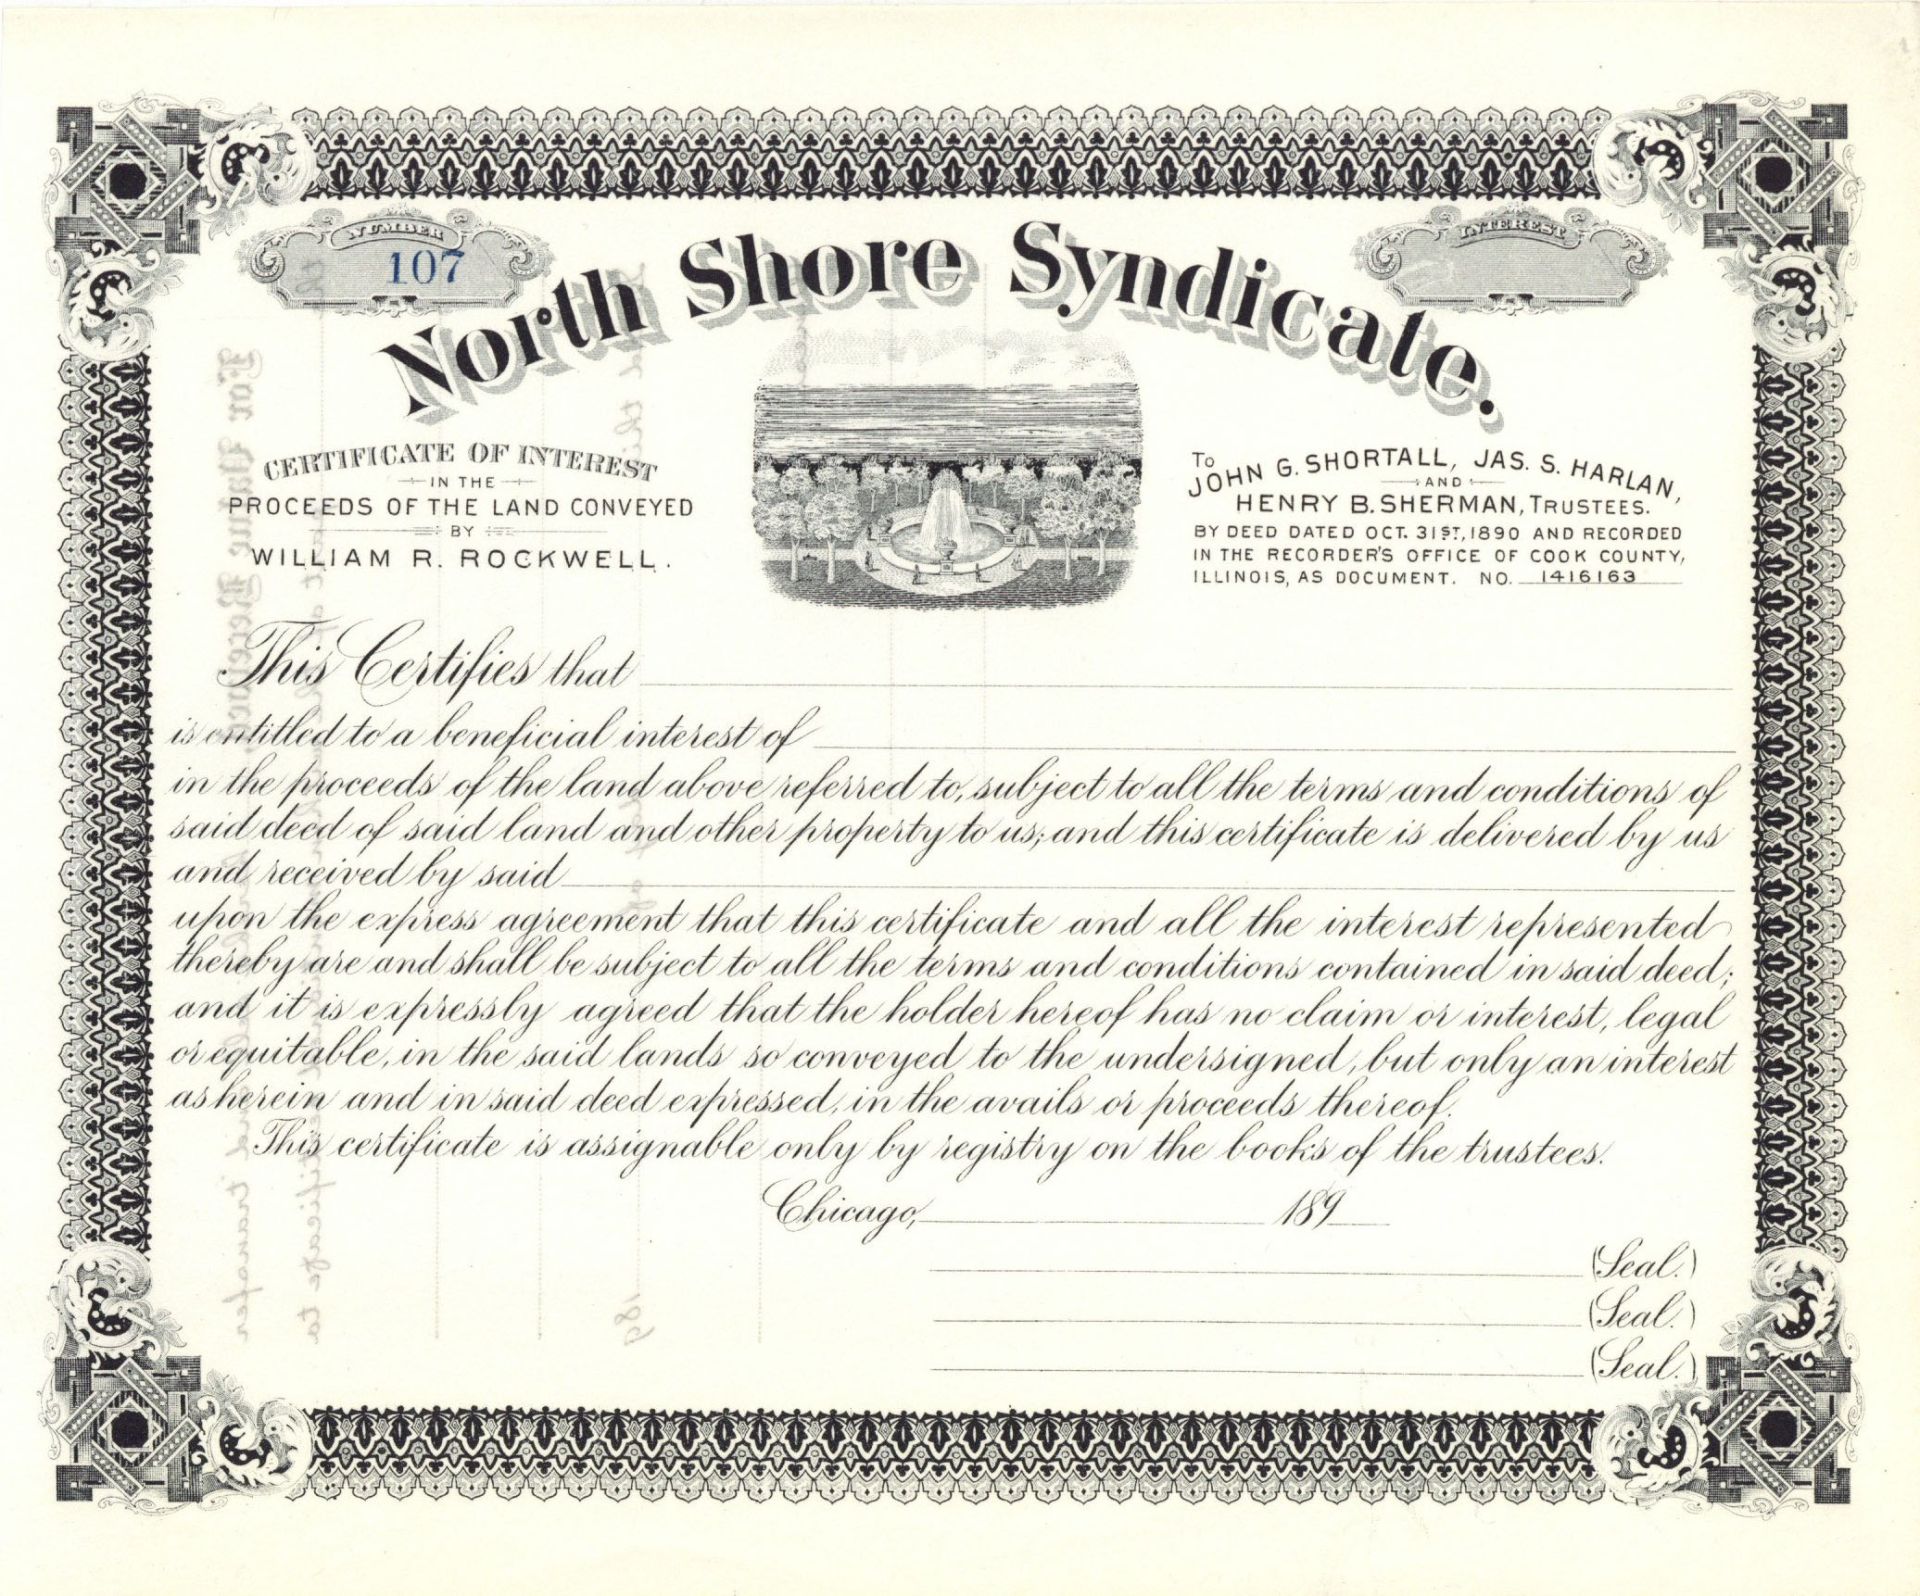 NUMBER
107
INTEREST
North Shore Syndicate.
CERTIFICATE OF INTEREST
IN THE
PROCEEDS OF THE LAND CONVEYED
BY
WILLIAM R. ROCKWELL.
To
JOHN G. SHORTALL, JAS. S. HARLAN,
AND
HENRY B. SHERMAN, TRUSTEES.
BY DEED DATED OCT. 31ST, 1890 AND RECORDED
IN THE RECORDER'S OFFICE OF COOK COUNTY,
ILLINOIS, AS DOCUMENT. NO. 1416163
This Certifies that
is entitled to a beneficial interest of
in the proceeds of the land above referred to, subject to all the terms and conditions of
said deed of said land and other property to us; and this certificate is delivered by us
and received by said
upon the express agreement that this certificate and all the interest represented
thereby are and shall be subject to all the terms and conditions contained in said deed;
and it is expressly agreed that the holder hereof has no claim or interest, legal
or equitable, in the said lands so conveyed to the undersigned, but only an interest
as herein and in said deed expressed, in the avails or proceeds thereof.
This certificate is assignable only by registry on the books of the trustees.
Chicago, 189
(Seal.)
(Seal.)
(Seal.)
For Value Received
transfer
certificate to
189